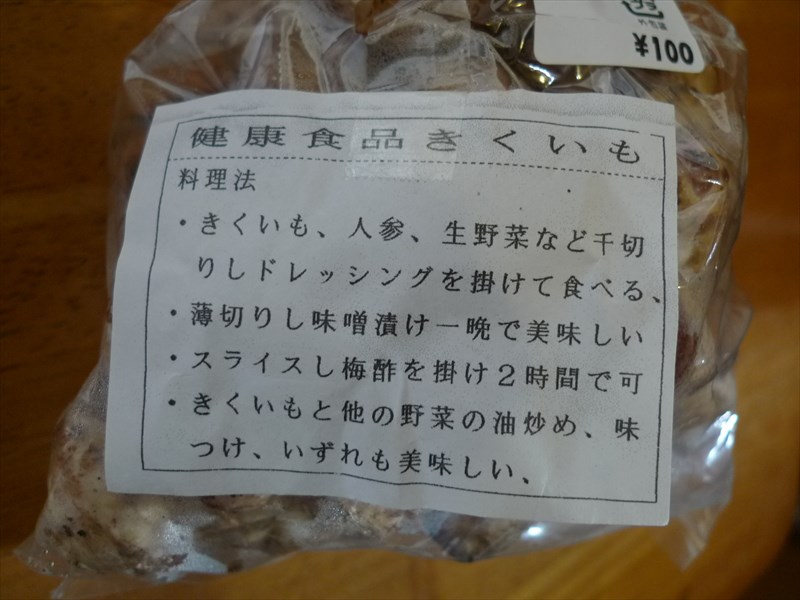 プラ
外装袋
¥100
健康食品きくいも
料理法
・きくいも、人参、生野菜など千切
りしドレッシングを掛けて食べる、
・薄切りし味噌漬け一晩で美味しい
・スライスし梅酢を掛け2時間で可
・きくいもと他の野菜の油炒め、味
つけ、いずれも美味しい、